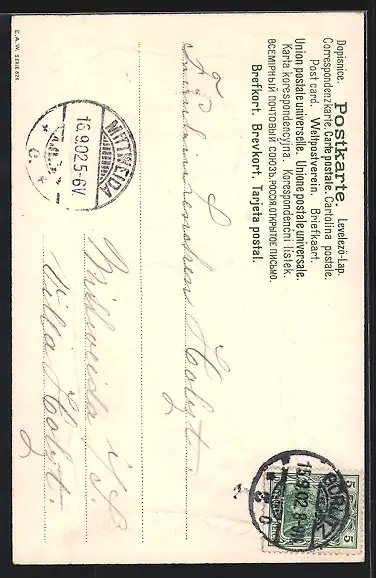 Dopisnice. Postkarte. Levelezö-Lap.
Correspondenzkarte. Carte postale. Cartolina postale.
Post card. Weltpostverein. Briefkaart.
Union postale universelle. Unione postale universale.
Karta korespondencyjna. Korespondenční lístek.
ВСЕМІРНЫЙ ПОЧТОВЫЙ СОЮЗЪ. РОССІЯ. ОТКРЫТОЕ ПИСЬМО.
Brefkort. Brevkort. Tarjeta postal.
Holzt.
Mittweida i/S.
Villa Holzt.
MITTWEIDA
16.9.02.5-6V.
15.9.02.
5 5
E.A.W. SERIE 821.